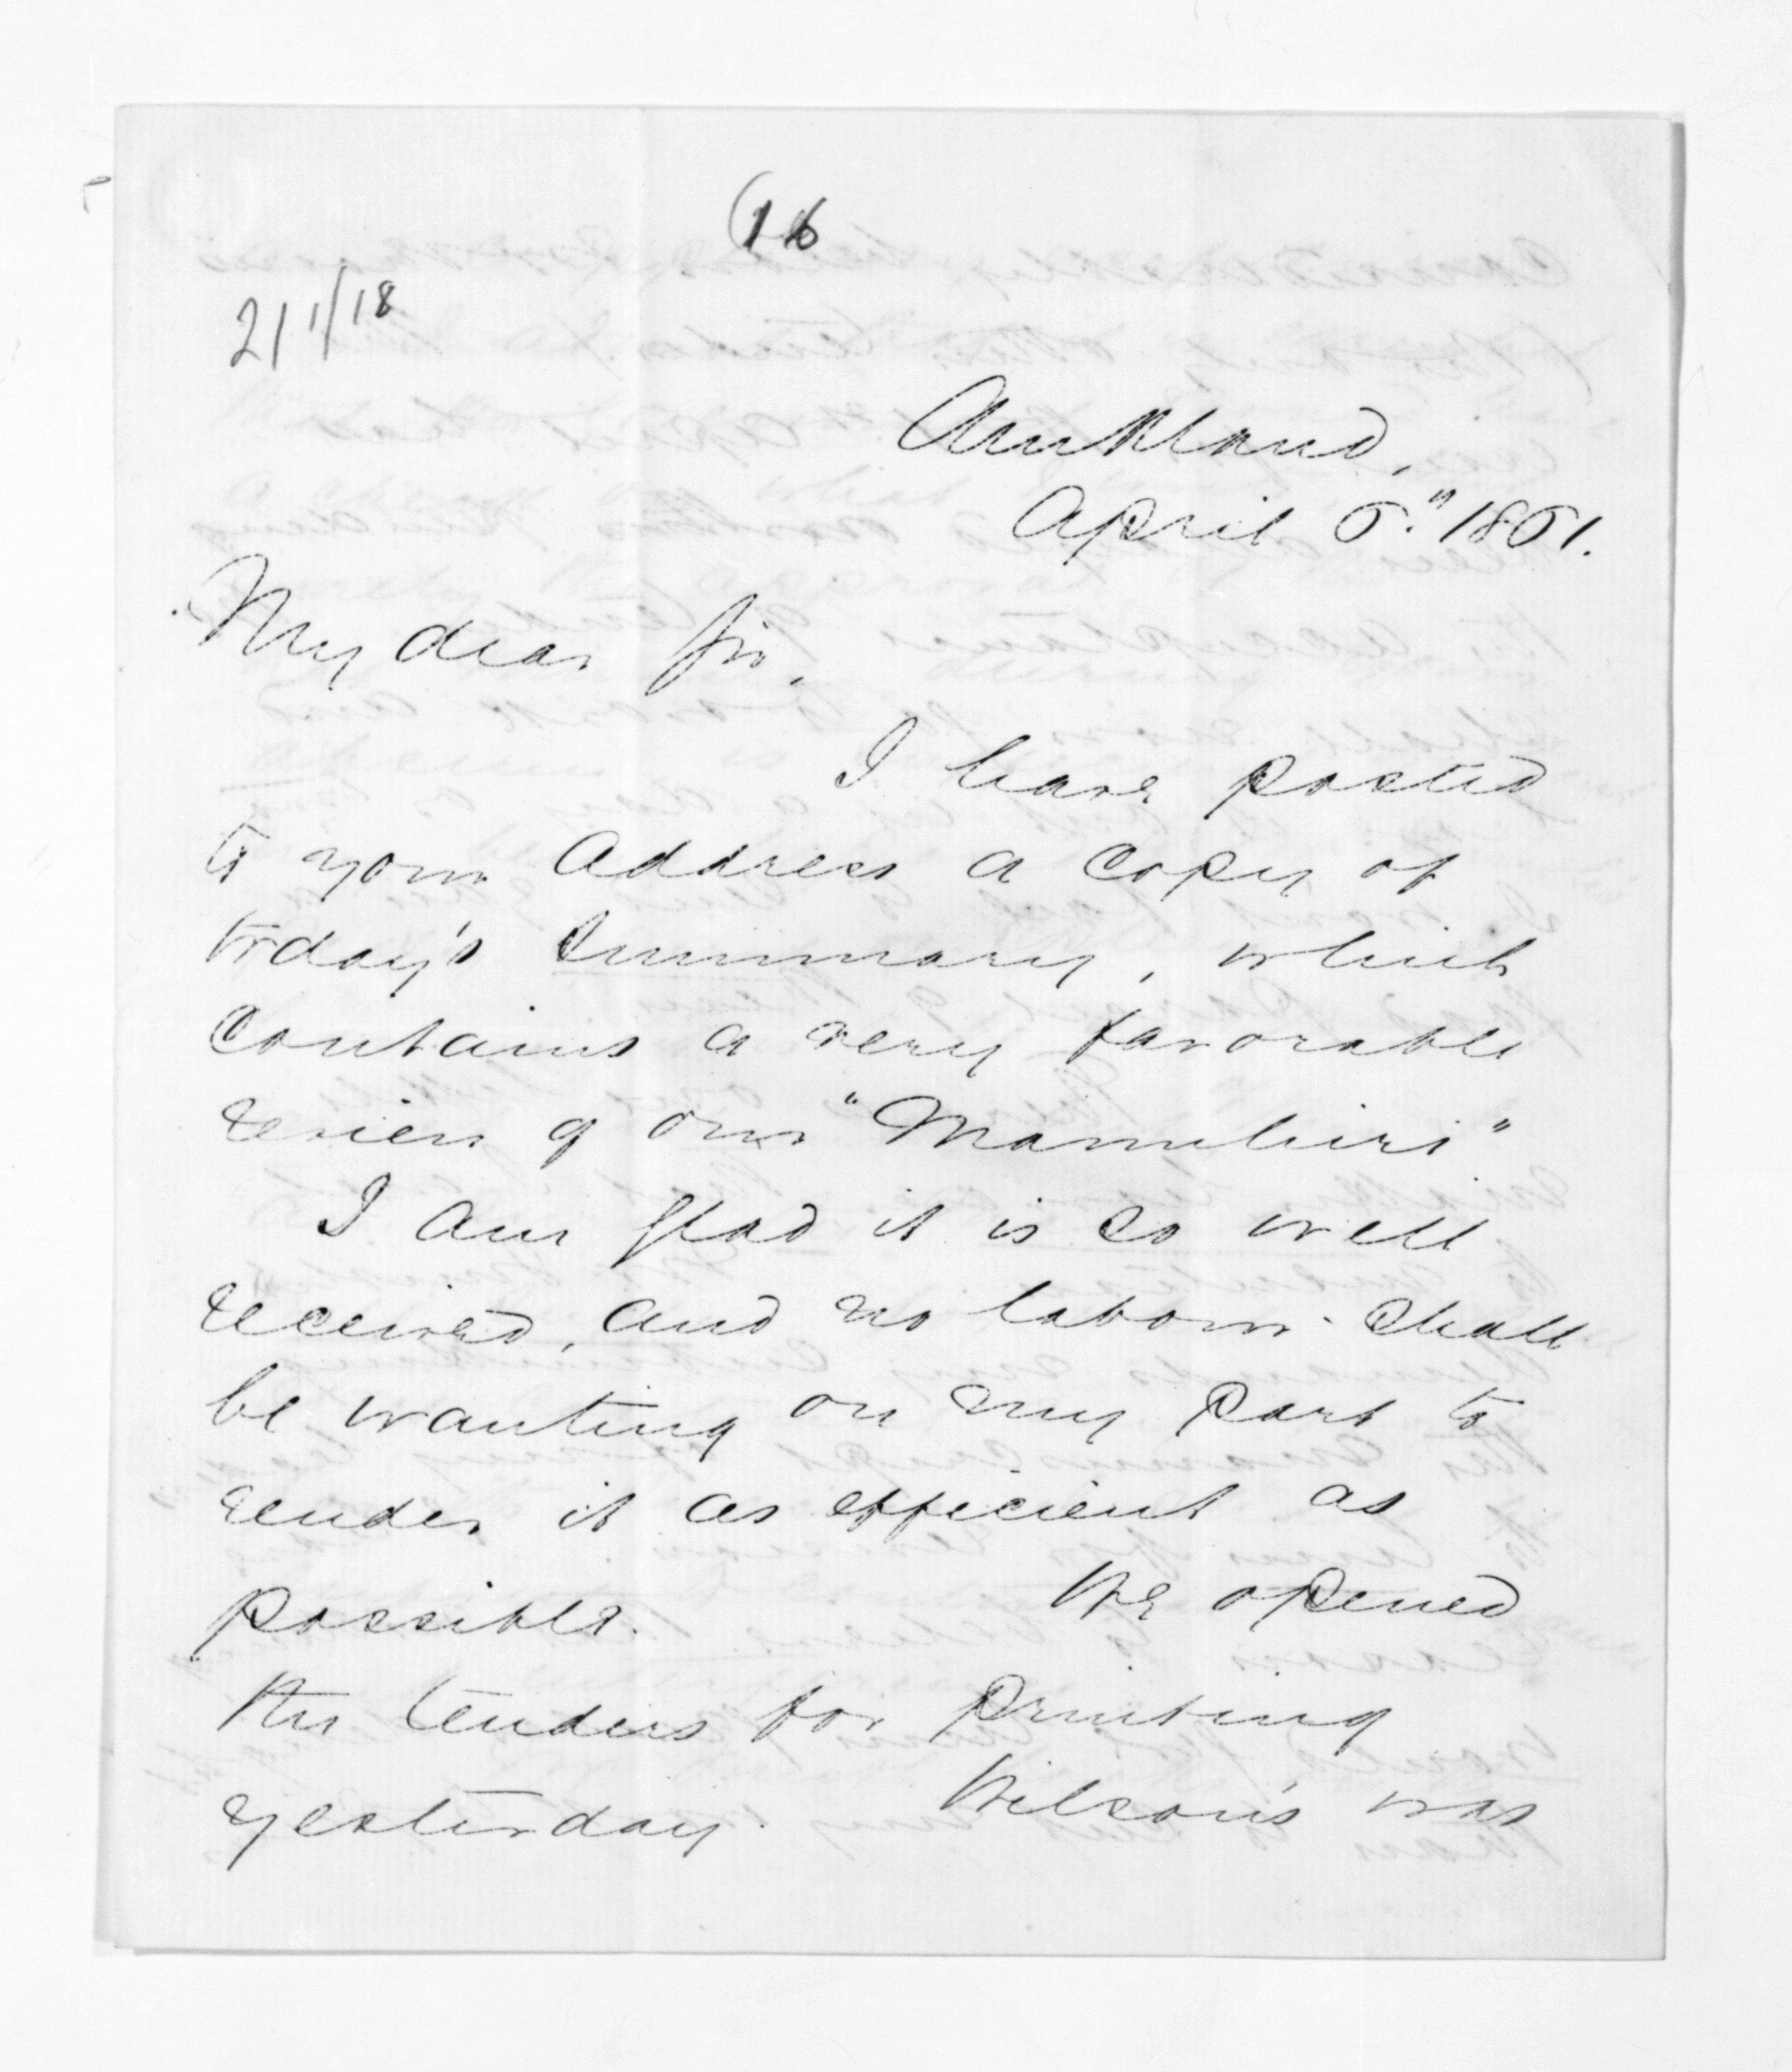 (16
211/18
Auckland,
April 6." 1861.
My dear Sir,
I have posted
to your address a copy of
today's Summary, which
contains a very favorable
review of our "Manuhiri"
I am glad it is so well
received, and no labour shall
be wanting on my part to
render it as efficient as
possible. We opened
the tenders for printing
yesterday. Wilson's was